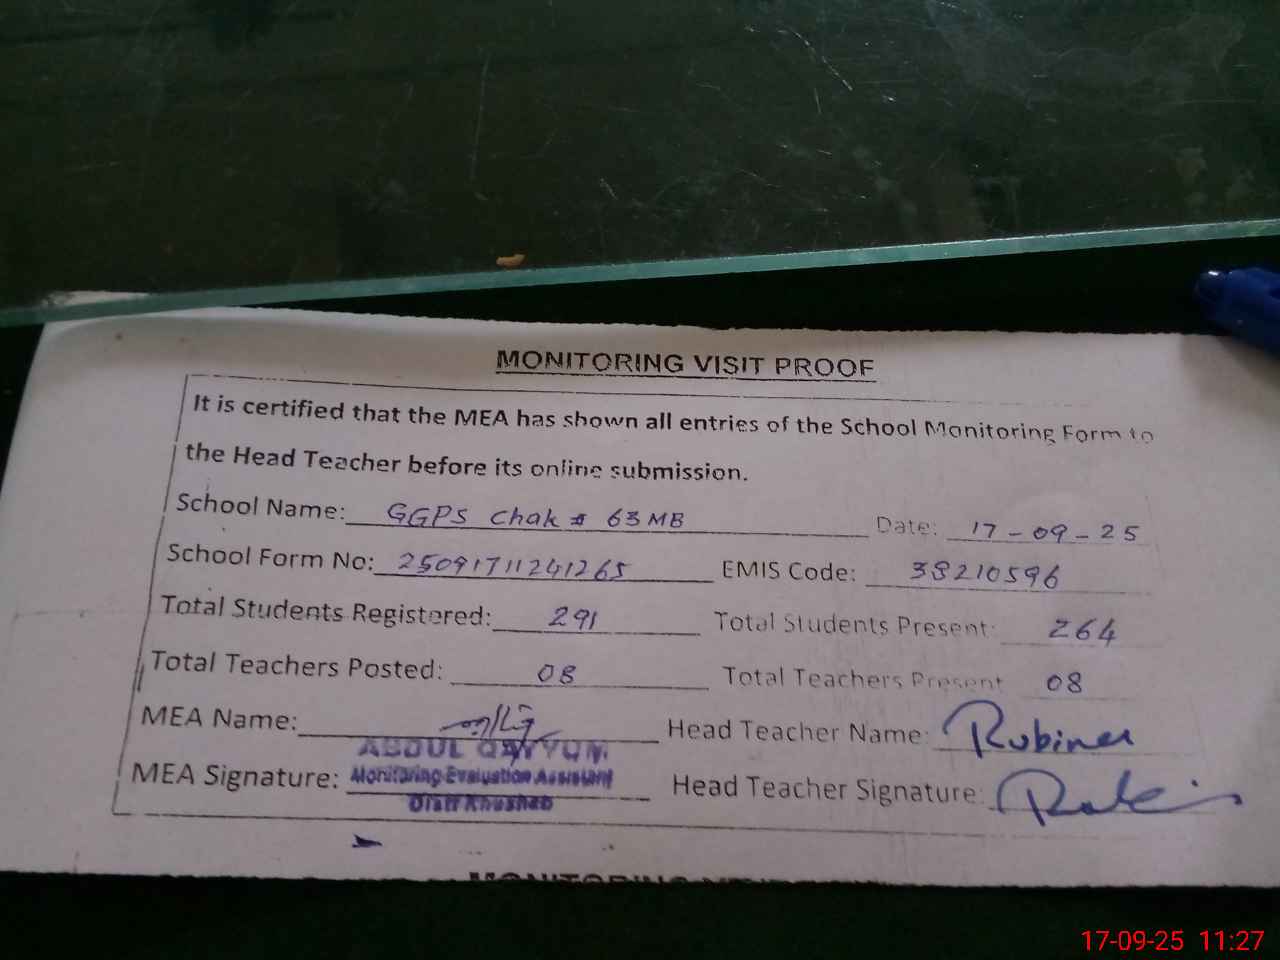 MONITORING VISIT PROOF
It is certified that the MEA has shown all entries of the School Monitoring Form to
the Head Teacher before its online submission.
School Name: GGPS Chak # 63 MB Date: 17-09-25
School Form No: 25091711241265 EMIS Code: 38210596
Total Students Registered: 291 Total Students Present: 264
Total Teachers Posted: 08 Total Teachers Present 08
MEA Name: Head Teacher Name: Rubina
ABDUL QAYYUM
MEA Signature: Monitoring Evaluation Assistant Head Teacher Signature:
Distt Khushab
17-09-25 11:27